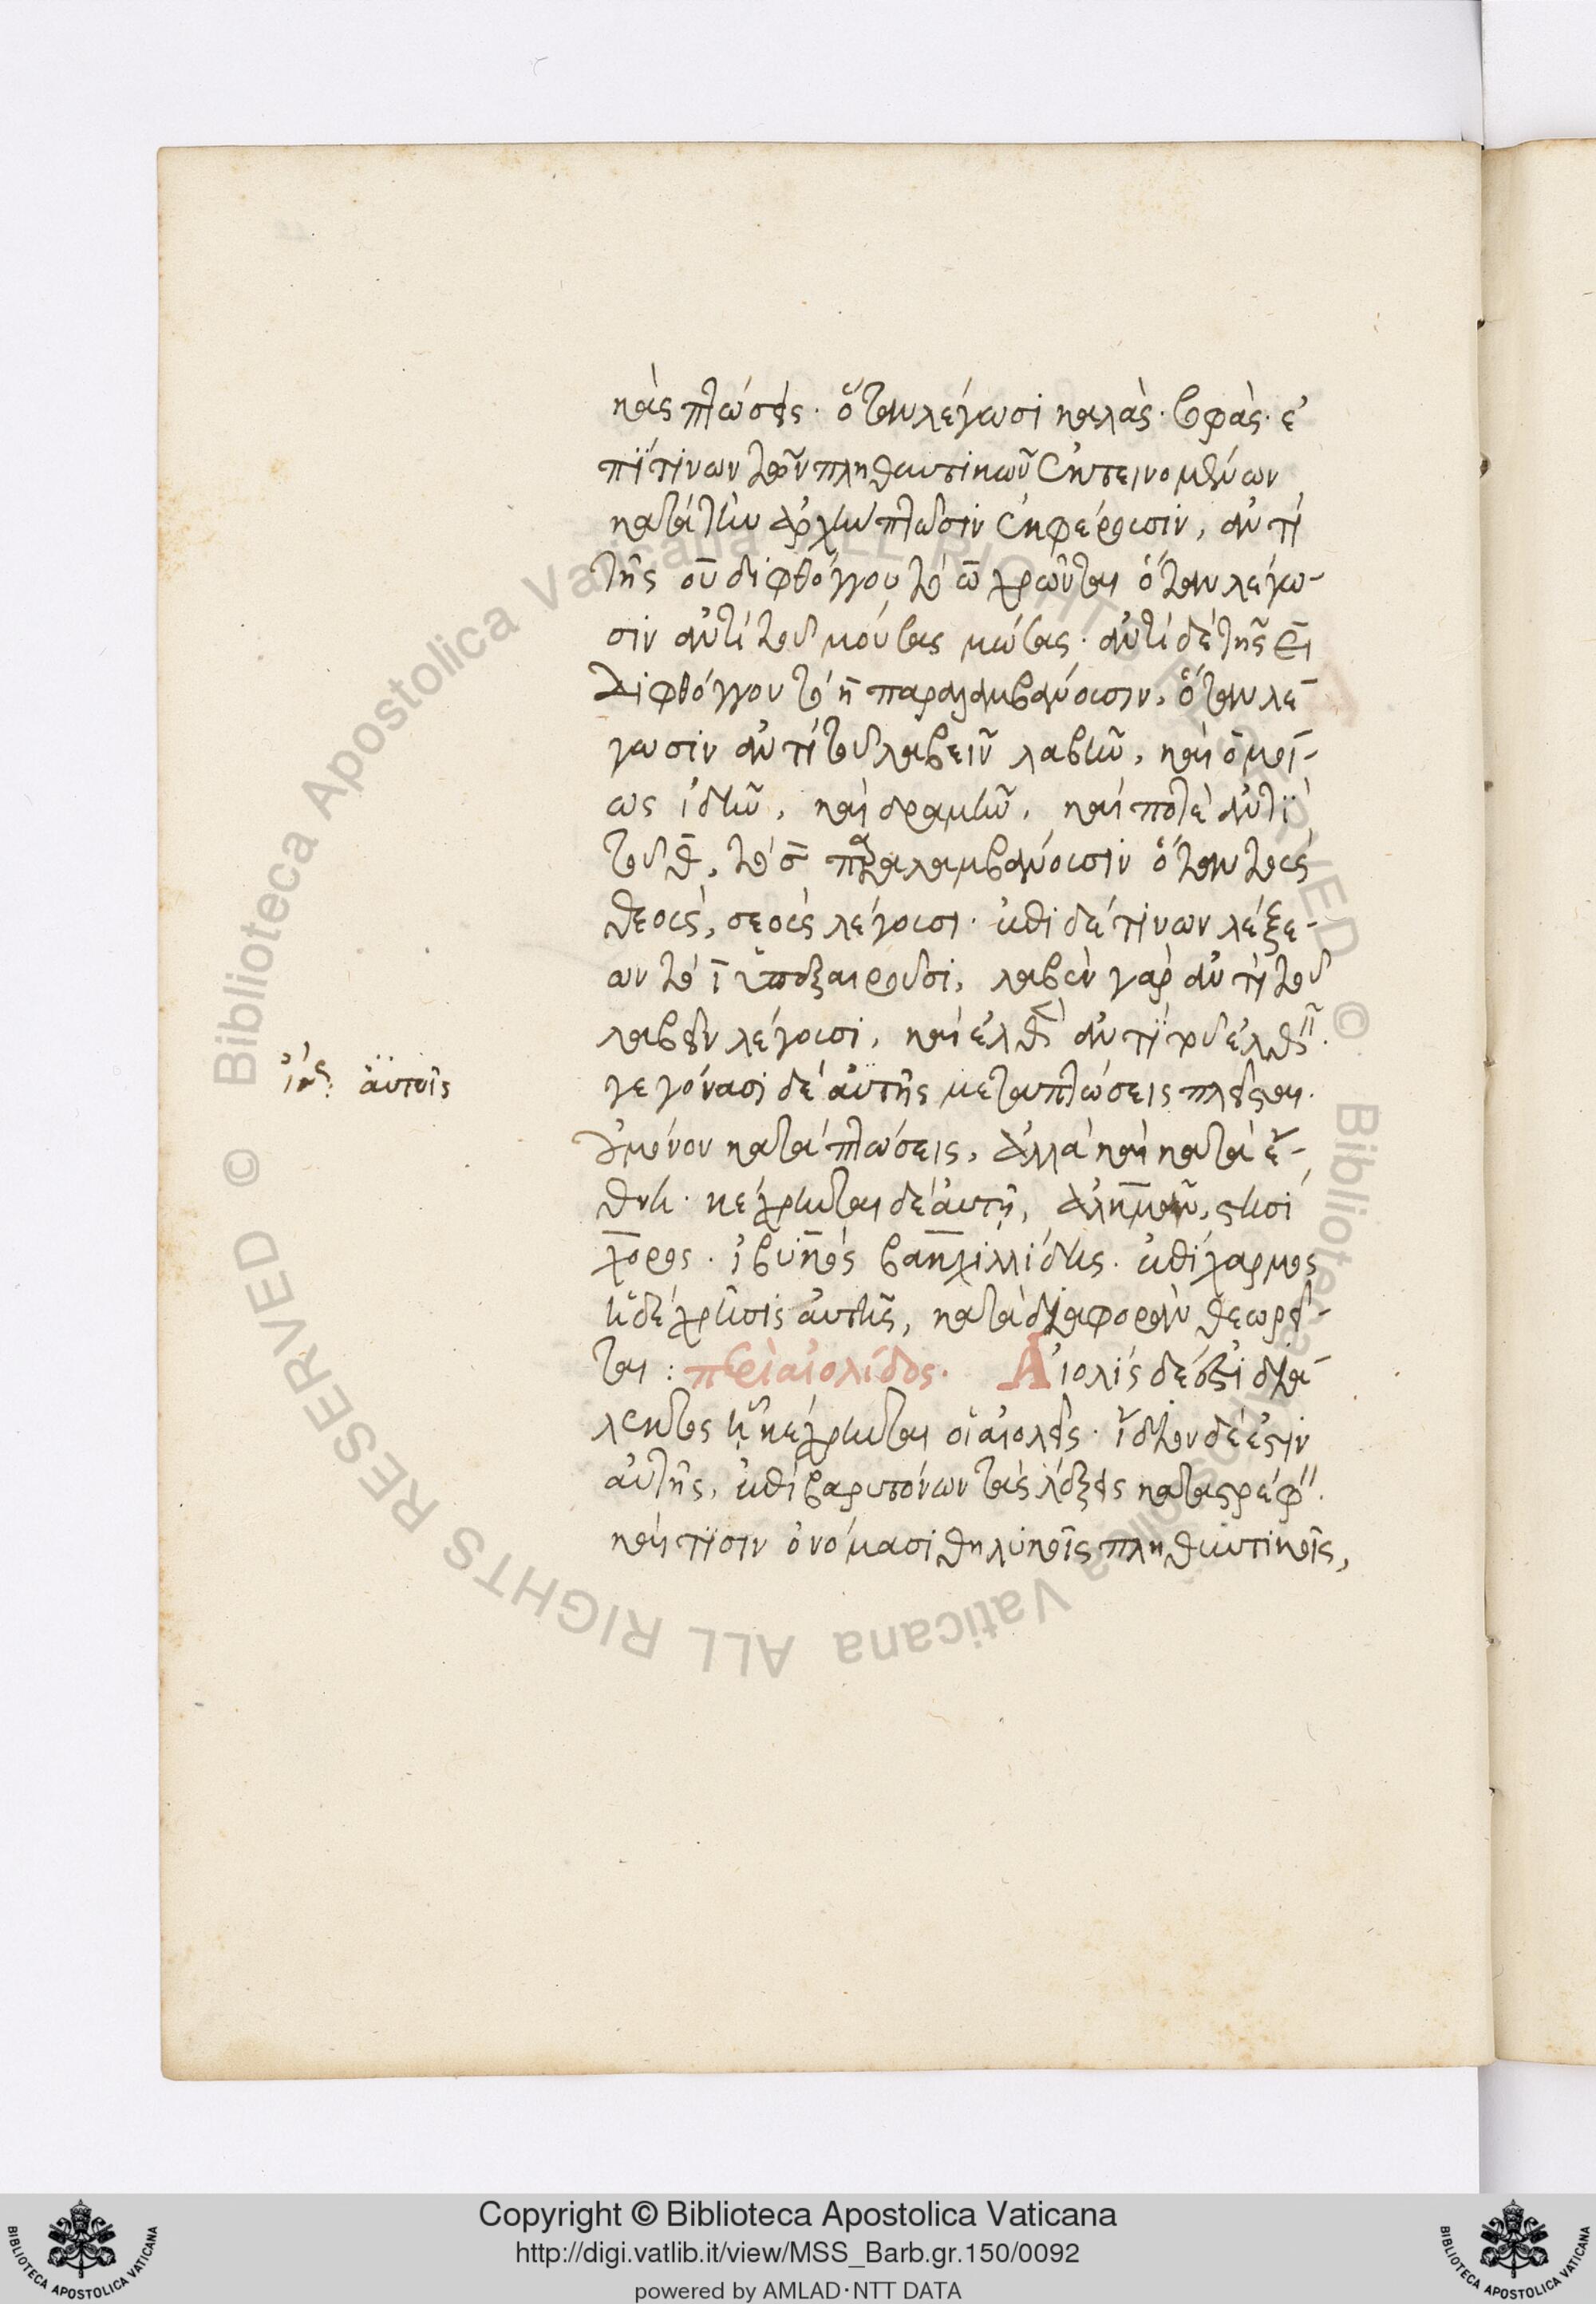 κὰς πτώσεις. ὅταν λέγωσι καλὰς. σοφὰς. ἐ
πΐ τίνων τῶν πληθυντικῶν ἐκτεινομένων
κατὰ τὴν ἀρχὴν πτῶσιν ἐκφέρουσιν, ἀντὶ
τῆς ου διφθόγγου τὸ ω χρῶνται ὅταν λέγω-
σιν ἀντὶ τοῦ μούσας μώσας. ἀντὶ δὲ τῆς ει
διφθόγγου τὸ η παραλαμβάνουσιν, ὅταν λέ
γωσιν ἀντὶ τοῦ λαβεῖν λαβῆν, καὶ ὁμοί-
ως ἰδῆν, καὶ δραμῆν, καὶ ποτὲ ἀντὶ
τοῦ θ, τὸ σ παραλαμβάνουσιν ὅταν τοὺς
θεοὺς, σεοὺς λέγουσι. ἐπὶ δέ τινων λέξε-
ων τὸ ι ὑπεξαιροῦσι, λαβὲν γὰρ ἀντὶ τοῦ
λαβεῖν λέγουσι, καὶ ἐλθὲν ἀντὶ τοῦ ἐλθεῖν.
γεγόνασι δὲ αὐτῆς μεταπτώσεις πλεῖσται.
οὐ μόνον κατὰ πτώσεις, ἀλλὰ καὶ κατὰ ἔ-
θνη. κέχρηται δὲ αὐτῇ, ἀλκμὰν, στησί
χορος. ἴβυκος βακχιλλίδης. ἐπίχαρμος
ἡ δὲ χρῆσις αὐτῆς, κατὰ διαφορὰν θεωρεῖ-
ται: περὶ αἰολίδος. Αἰολὶς δέ ἐστι διά
λεκτος ᾗ κέχρηται οἱ αἰολεῖς. ἴδιον δέ ἐστιν
αὐτῆς, ἐπὶ βαρυτόνων τὰς λέξεις καταστρέφειν.
καὶ τισιν ὀνόμασι θηλυκοῖς πληθυντικοῖς,
αὐτοῖς